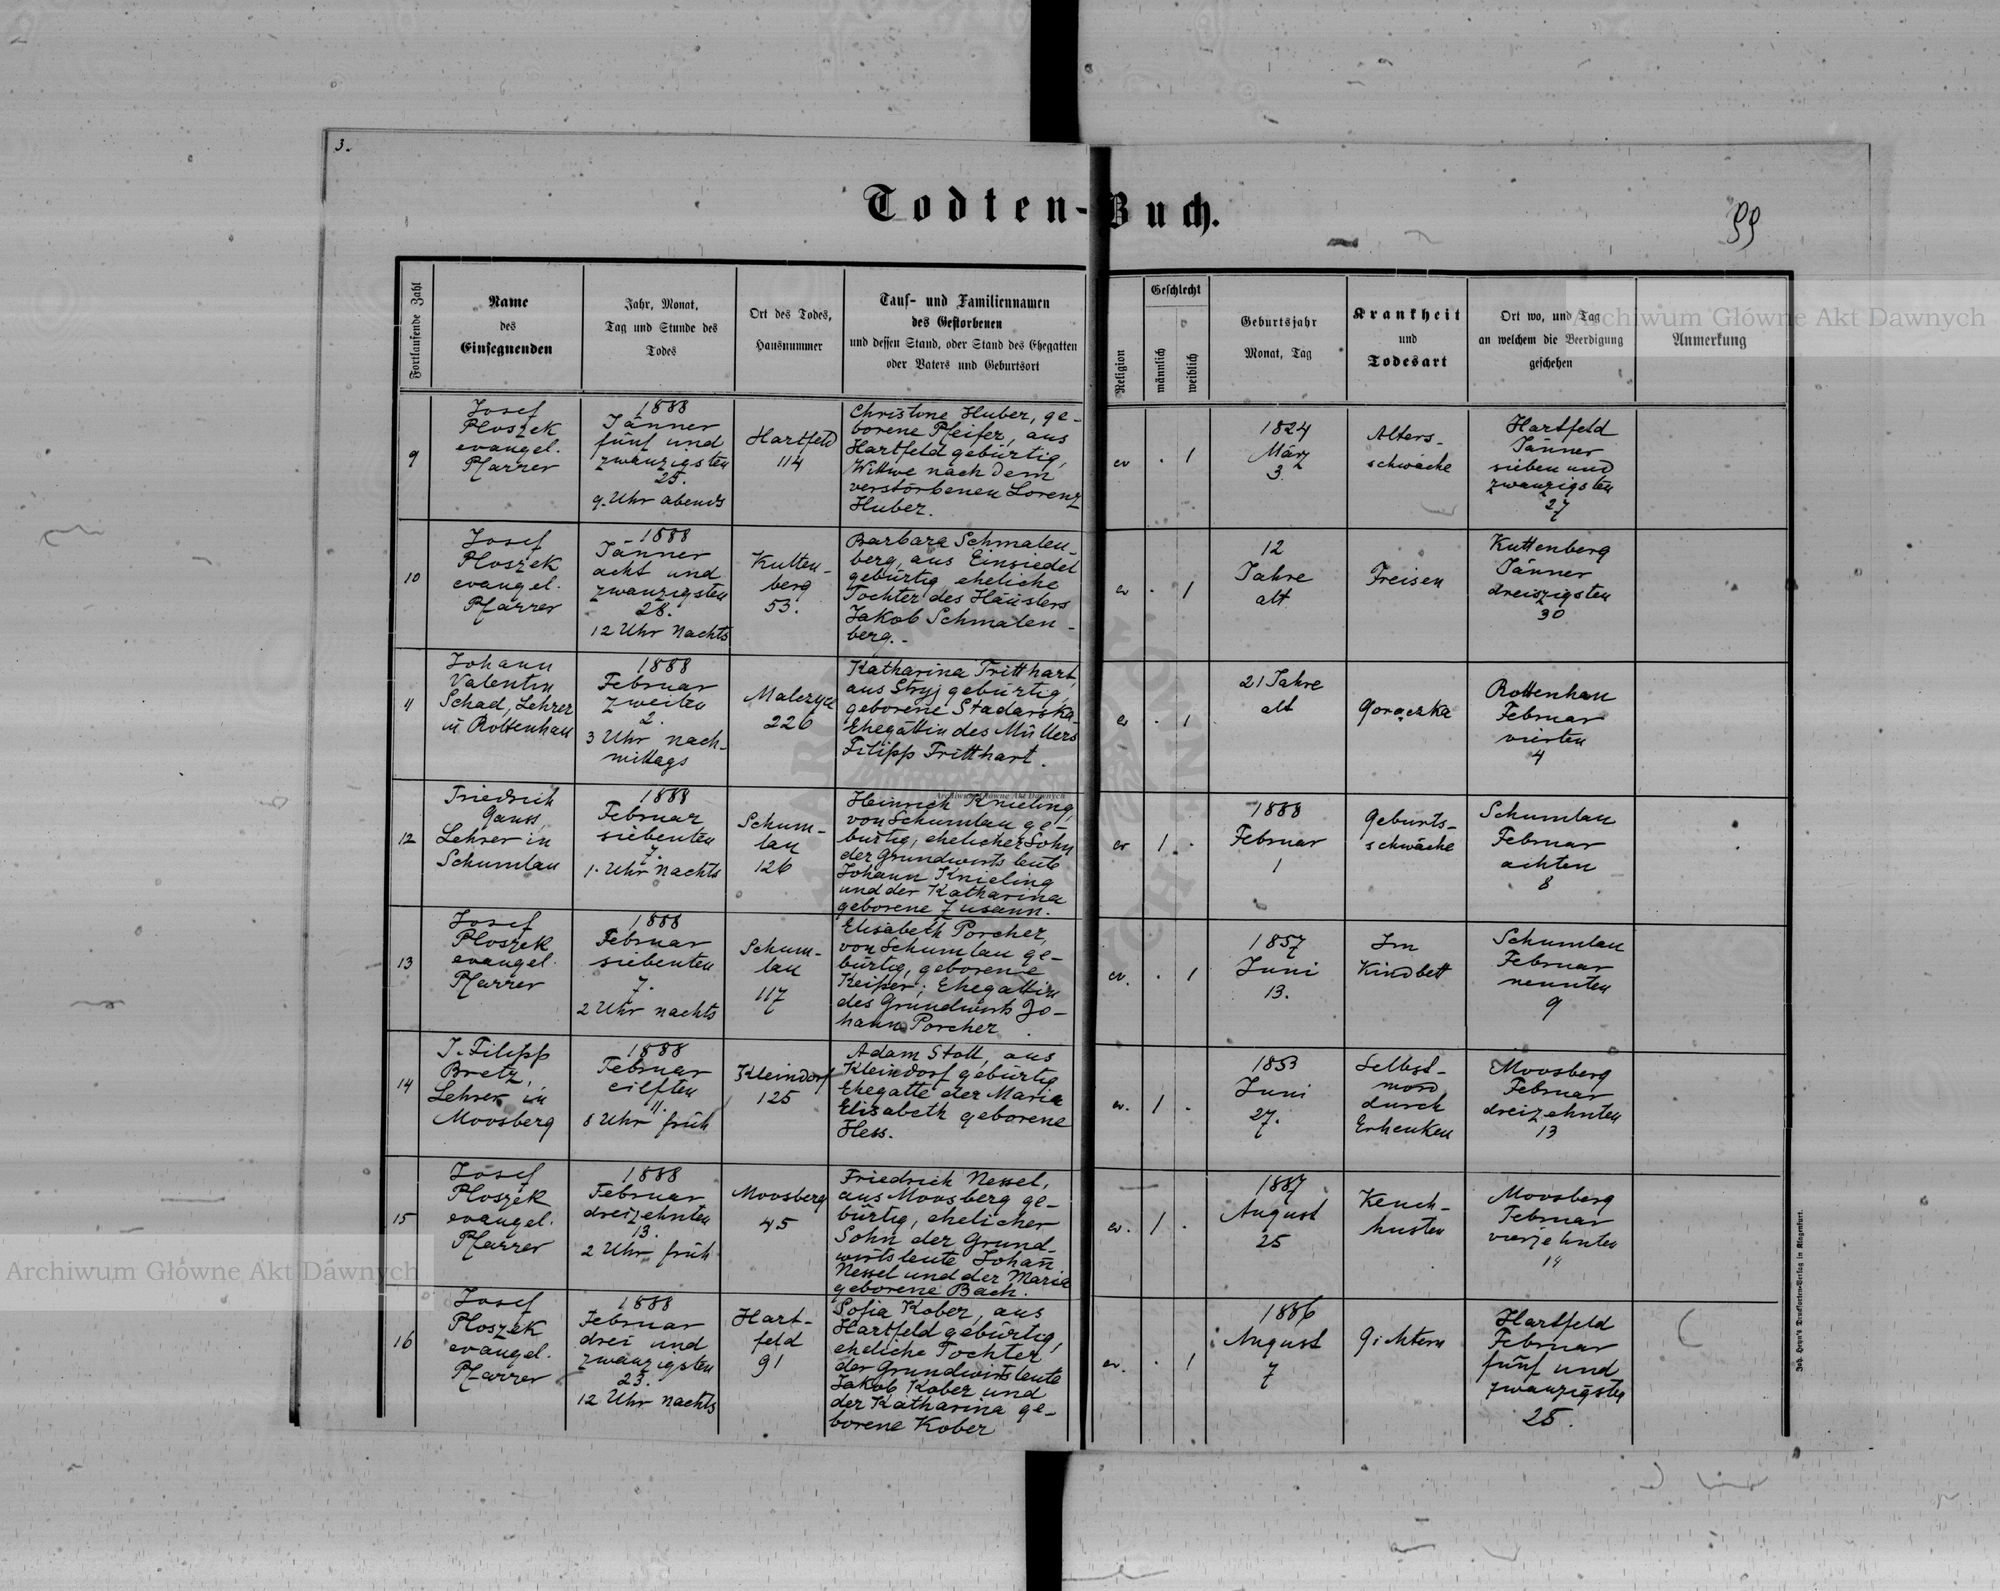 3.
Todten-Buch.
99
Fortlaufende Zahl
Name
des
Einsegnenden
Jahr, Monat,
Tag und Stunde des
Todes
Ort des Todes,
Hausnummer
Tauf- und Familiennamen
des Gestorbenen
und dessen Stand, oder Stand des Ehegatten
oder Vaters und Geburtsort
Religion
Geschlecht
männlich
weiblich
Geburtsjahr
Monat, Tag
Krankheit
und
Todesart
Ort wo, und Tag
an welchem die Beerdigung
geschehen
Anmerkung
9
Josef
Ploszek
evangel.
Pfarrer
1888
Jänner
fünf und
zwanzigsten
25.
9. Uhr abends
Hartfeld
114
Christine Huber, ge-
borene Pfeifer, aus
Hartfeld gebürtig,
Witwe nach dem
verstorbenen Lorenz
Huber.
ev
. 1
1824
März
3
Alters-
schwäche
Hartfeld
Jänner
sieben und
zwanzigsten
27
10
Josef
Ploszek
evangel.
Pfarrer
1888
Jänner
acht und
zwanzigsten
28.
12 Uhr Nachts
Kutten-
berg
53.
Barbara Schmalen-
berg, aus Einsiedel
gebürtig, eheliche
Tochter des Häuslers
Jakob Schmalen-
berg.-
ev
. 1
12
Jahre
alt
Freisen
Kuttenberg
Jänner
dreiszigsten
30
11
Johann
Valentin
Schad, Lehrer
in Rottenhan
1888
Februar
zweiten
2.
3 Uhr nach-
mittags
Malczyce
226
Katharina Tritthart,
aus Stryj gebürtig,
geborene Stadarska-
Ehegattin des Müllers
Filipp Tritthart.
ev
. 1
21 Jahre
alt
Goraczka
Rottenhan
Februar
vierten
4
12
Friedrich
Gauss
Lehrer in
Schumlau
1888
Februar
siebenten
7.
1. Uhr nachts
Schum-
lau
126
Heinrich Knieling,
von Schumlau ge-
bürtig, ehelicher Sohn
der Grundwirtsleute
Johann Knieling
und der Katharina
geborene Zusann.
ev
1 .
1888
Februar
1
Geburts-
schwäche
Schumlau
Februar
achten
8
13
Josef
Ploszek
evangel.
Pfarrer
1888
Februar
siebenten
7.
2 Uhr nachts
Schum-
lau
117
Elisabeth Porcher,
von Schumlau ge-
bürtig, geborene
Keiper; Ehegattin
des Grundwirts Jo-
hann Porcher
ev.
. 1
1857
Juni
13.
Im
Kindbett
Schumlau
Februar
neunten
9
14
J. Filipp
Bretz,
Lehrer in
Moosberg
1888
Februar
eilften
11.
8 Uhr früh
Kleindorf
125
Adam Stoll, aus
Kleindorf gebürtig,
Ehegatte der Maria
Elisabeth geborene
Hess.
ev.
1 .
1853
Juni
27.
Selbst-
mord
durch
Erhenken
Moosberg
Februar
dreizehnten
13
15
Josef
Ploszek
evangel.
Pfarrer
1888
Februar
dreizehnten
13.
2 Uhr früh
Moosberg
45
Friedrich Nessel,
aus Moosberg ge-
bürtig, ehelicher
Sohn der Grund-
wirtsleute Johañ
Nessel und der Maria
geborene Bach.
ev.
1 .
1887
August
25
Keuch-
husten
Moosberg
Februar
vierzehnten
14
16
Josef
Ploszek
evangel.
Pfarrer
1888
Februar
drei und
zwanzigsten
23.
12 Uhr nachts
Hart-
feld
91
Sofia Kober, aus
Hartfeld gebürtig,
eheliche Tochter
der Grundwirtsleute
Jakob Kober und
der Katharina ge-
borene Kober
ev.
. 1
1886
August
7
Gichtern
Hartfeld
Februar
fünf und
zwanzigsten
25.
Joh. Heyn's Drucksorten-Verlag in Klagenfurt.
Archiwum Główne Akt Dawnych
Archiwum Główne Akt Dawnych
Archiwum Główne Akt Dawnych